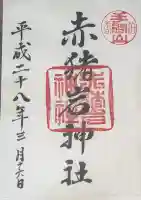 赤猪岩神社
平成二十八年三月十六日